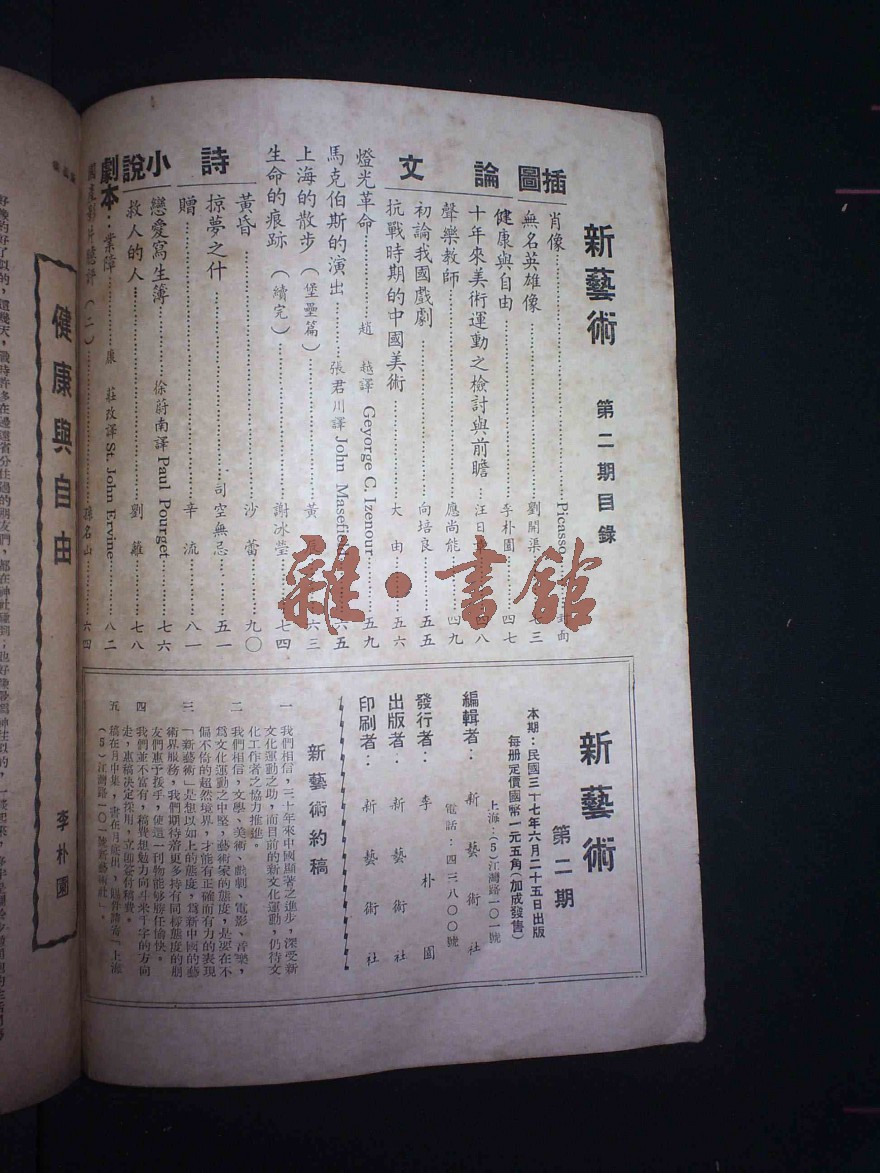 新藝術 第二期目錄
插圖
肖像 Picasso 封面
無名英雄像 劉開渠 七三
論文
健康與自由 李朴園 四七
十年來美術運動之檢討與前瞻 汪日章 四八
聲樂教師 應尚能 四九
初論我國戲劇 向培良 五五
抗戰時期的中國美術 大由 五六
燈光革命 趙越譯 Geyorge C. Izenour 五九
馬克伯斯的演出 張君川譯 John Masefield 六五
上海的散步(堡壘篇) 黃 六三
生命的痕跡(續完) 謝冰瑩 七四
詩
黃昏 沙蕾 九〇
掠夢之什 司空無忌 五一
贈 辛流 八一
小說
戀愛寫生簿 徐蔚南譯 Paul Pourget 七六
救人的人 劉蘿 七八
劇本:業障 康莊改譯 St. John Ervine 八二
國產影片總評(二) 孫名山 六四
新藝術 第二期
本期:民國三十七年六月二十五日出版
每册定價國幣一元五角(加成發售)
編輯者:新藝術社
上海:(5)江灣路一〇一號
電話:四三八〇〇號
發行者:李朴園
出版者:新藝術社
印刷者:新藝術社
新藝術約稿
一 我們相信,三十年來中國顯著之進步,深受新
文化運動之助,而目前的新文化運動,仍待文
化工作者之協力推進。
二 我們相信,文學、美術、戲劇、電影、音樂,
爲文化運動之中堅,藝術家的態度,是要在不
偏不倚的超然境界,才能有正確而有力的表現
三 「新藝術」是想以如上的態度,爲新中國的藝
術界服務,我們期待着更多持有同樣態度的朋
友們惠予援手,使這一刊物能够勝任愉快。
四 我們並不富有,稿費想勉力向斗米千字的方向
走,惠稿決定採用,立即簽付稿費。
五 稿在月中集,書在月底出,賜件請寄「上海
(5)江灣路一〇一號新藝術社」。
健康與自由
李朴園
雜·書館